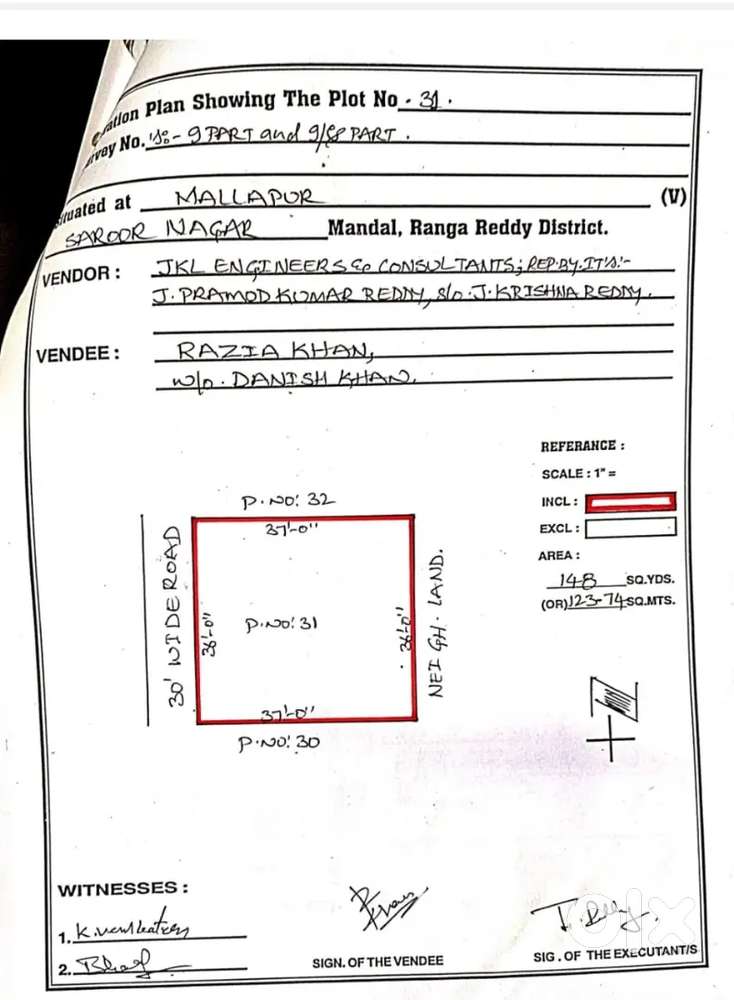 ation Plan Showing The Plot No. 31.
rvey No. 9 PART and 9/ PART.
ituated at MALLAPUR (V)
SAROOR NAGAR Mandal, Ranga Reddy District.
VENDOR : JKL ENGINEERS & CONSULTANTS; REP.BY.IT'S:-
J. PRAMOD KUMAR REDDY, S/o. J. KRISHNA REDDY.
VENDEE : RAZIA KHAN,
W/o. DANISH KHAN.
REFERANCE :
SCALE : 1" =
INCL :
EXCL :
AREA :
148 SQ.YDS.
(OR) 123-74 SQ.MTS.
P.NO: 32
37'-0"
30' WIDE ROAD
36'-0"
P.NO: 31
36'-0"
NEIGH. LAND.
37'-0"
P.NO: 30
WITNESSES :
1. K.
2.
SIGN. OF THE VENDEE
SIG. OF THE EXECUTANT/S
olx